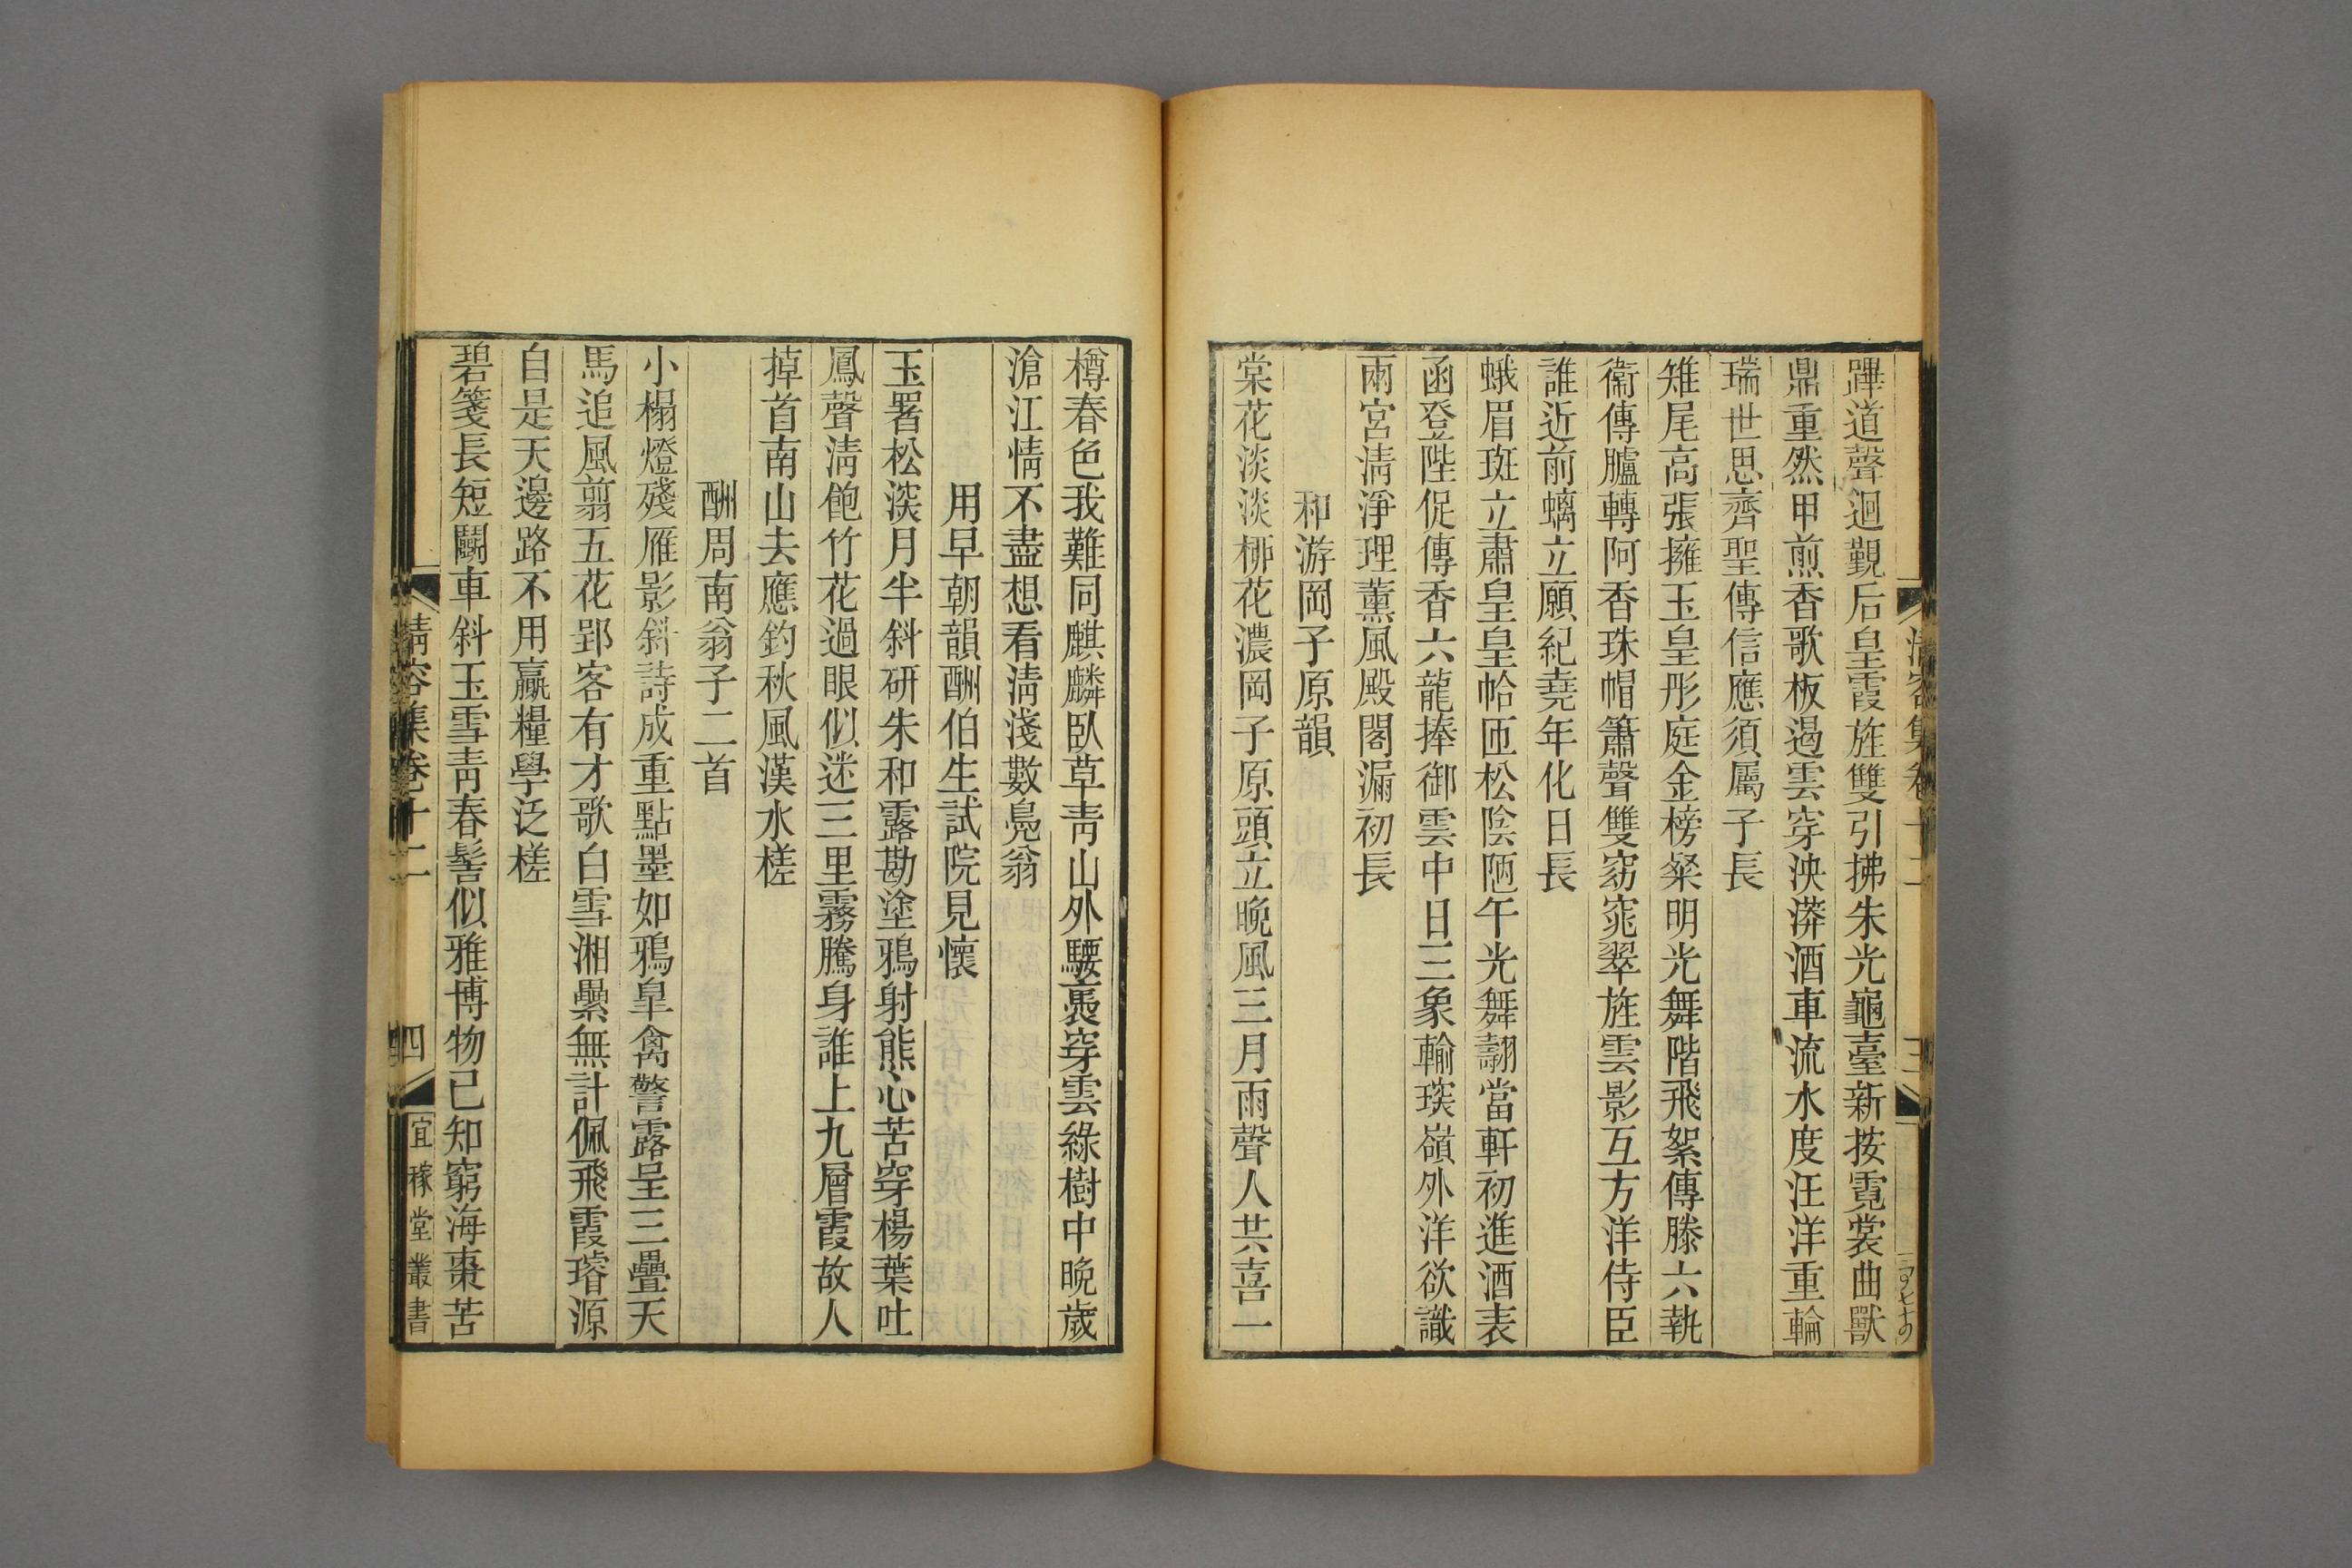 蹕道聲迴覲后皇霞旌雙引拂朱光龜臺新按霓裳曲獸
鼎重然甲煎香歌板遏雲穿泱漭酒車流水度汪洋重輪
瑞世思齊聖傳信應須屬子長
雉尾高張擁玉皇彤庭金榜粲明光舞階飛絮傳滕六執
衞傳臚轉阿香珠帽簫聲雙窈窕翠旌雲影互方洋侍臣
誰近前螭立願紀堯年化日長
蛾眉班立肅皇皇帢匝松陰陋午光舞翿當軒初進酒表
函登陛促傳香六龍捧御雲中日三象輸琛嶺外洋欲識
兩宮淸淨理薰風殿閣漏初長
和游岡子原韻
棠花淡淡柳花濃岡子原頭立晩風三月雨聲人共喜一
淸容集卷十二
三
樽春色我難同麒麟臥草靑山外騕褭穿雲綠樹中晩歲
滄江情不盡想看淸淺數鳧翁
用早朝韻酬伯生試院見懷
玉署松淡月半斜研朱和露勘塗鴉射熊心苦穿楊葉吐
鳳聲淸飽竹花過眼似迷三里霧騰身誰上九層霞故人
掉首南山去應釣秋風漢水槎
酬周南翁子二首
小榻燈殘雁影斜詩成重點墨如鴉皐禽警露呈三疊天
馬追風翦五花郢客有才歌白雪湘纍無計佩飛霞璿源
自是天邊路不用贏糧學泛槎
碧箋長短鬭車斜玉雪靑春髻似雅博物已知窮海棗苦
淸容集卷十二
四
宜稼堂叢書